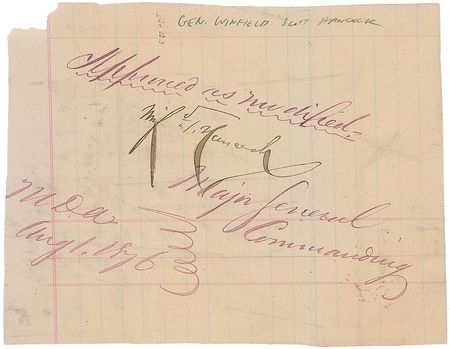 GEN. WINFIELD SCOTT HANCOCK
Approved as modified
Winf S. Hancock
Major General
Commanding
M D A
Aug 1. 1876